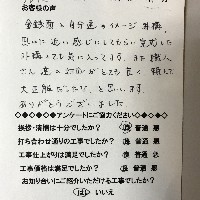 お客様の声
金銭面と自分達のイメージ、外構
思いに近い感じにしてもらい完成した
外構とても気に入ってます。また職人
さん達との対応がとても良く、頼んで
大正解でした。と、思います。
ありがとうございました。
◇◆◇◆◇◆アンケートにご協力ください◇◆◇◆◇◆
挨拶・清掃は十分でしたか? 良 普通 悪
打ち合わせ通りの工事でしたか? 良 普通 悪
工事仕上がりは満足でしたか? 良 普通 悪
工事価格は満足でしたか? 良 普通 悪
お知り合いにご紹介いただける工事でしたか?
はい いいえ